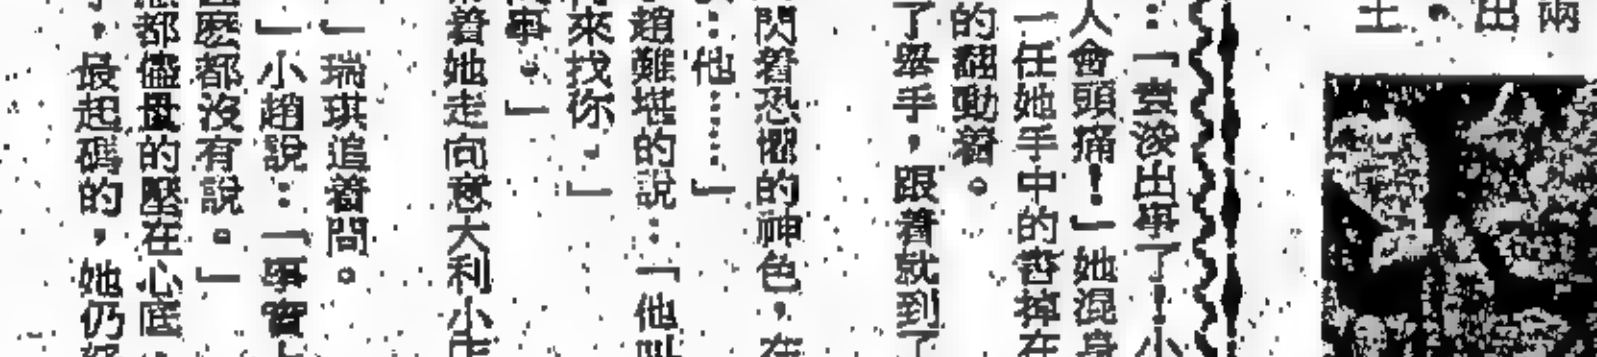 兩
出
。
土
：「袁浚出事了！小
人會頭痛！」她混身
一任她手中的書掉在
的翻動着。
了舉手，跟着就到了
閃着恐懼的神色，在
…他……」
趙難堪的說：「他叫
來找你。」
事。」
着她走向意大利小店
」瑞琪追着問。
」小趙說：「事實上
麼都沒有說。」
都儘量的壓在心底
，最起碼的，她仍